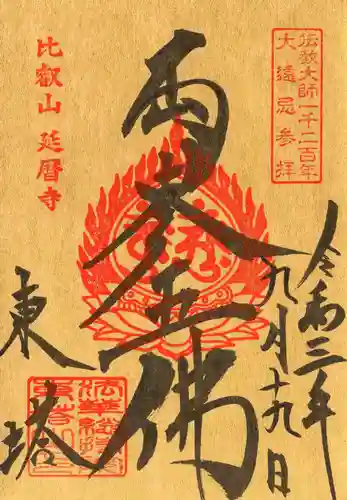 伝教大師一千二百年
大遠忌参拝
令和三年
九月十九日
両五佛
比叡山 延暦寺
東塔